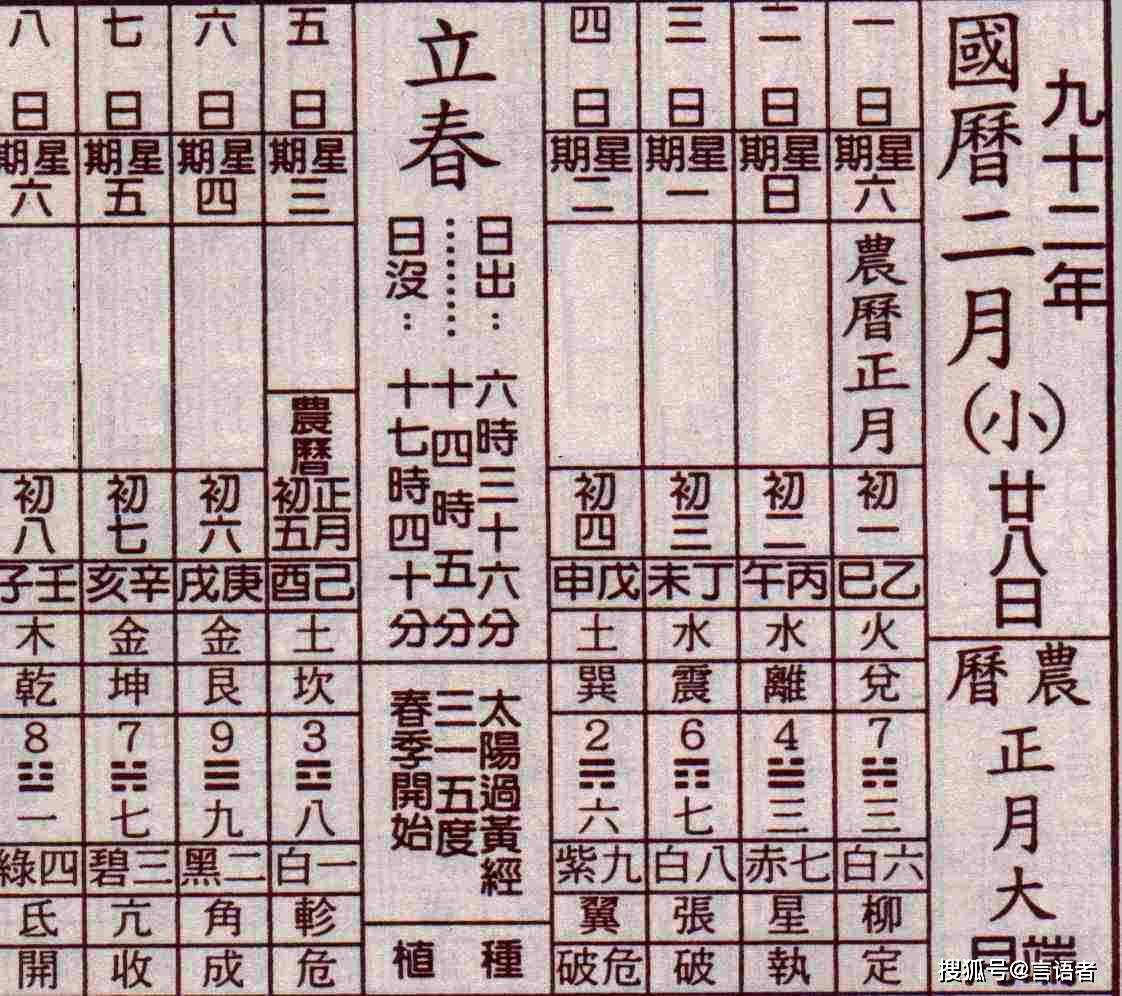 九十二年
國曆二月(小)廿八日
農曆正月大
端月
一日
星期六
農曆正月
初一
乙巳
火
兌
7
三
六白
柳
定
二日
星期日
初二
丙午
水
離
4
三
七赤
星
執
三日
星期一
初三
丁未
水
震
6
七
八白
張
破
四日
星期二
初四
戊申
土
巽
2
六
九紫
翼
危破
立春
日出:六時三十六分
⋯⋯⋯十四時五分
日沒:十七時四十分
太陽過黃經
三一五度
春季開始
種植
五日
星期三
農曆
正月
初五
己酉
土
坎
3
八
一白
軫
危
六日
星期四
初六
庚戌
金
艮
9
九
二黑
角
成
七日
星期五
初七
辛亥
金
坤
7
七
三碧
亢
收
八日
星期六
初八
壬子
木
乾
8
一
四綠
氐
開
搜狐号@言语者